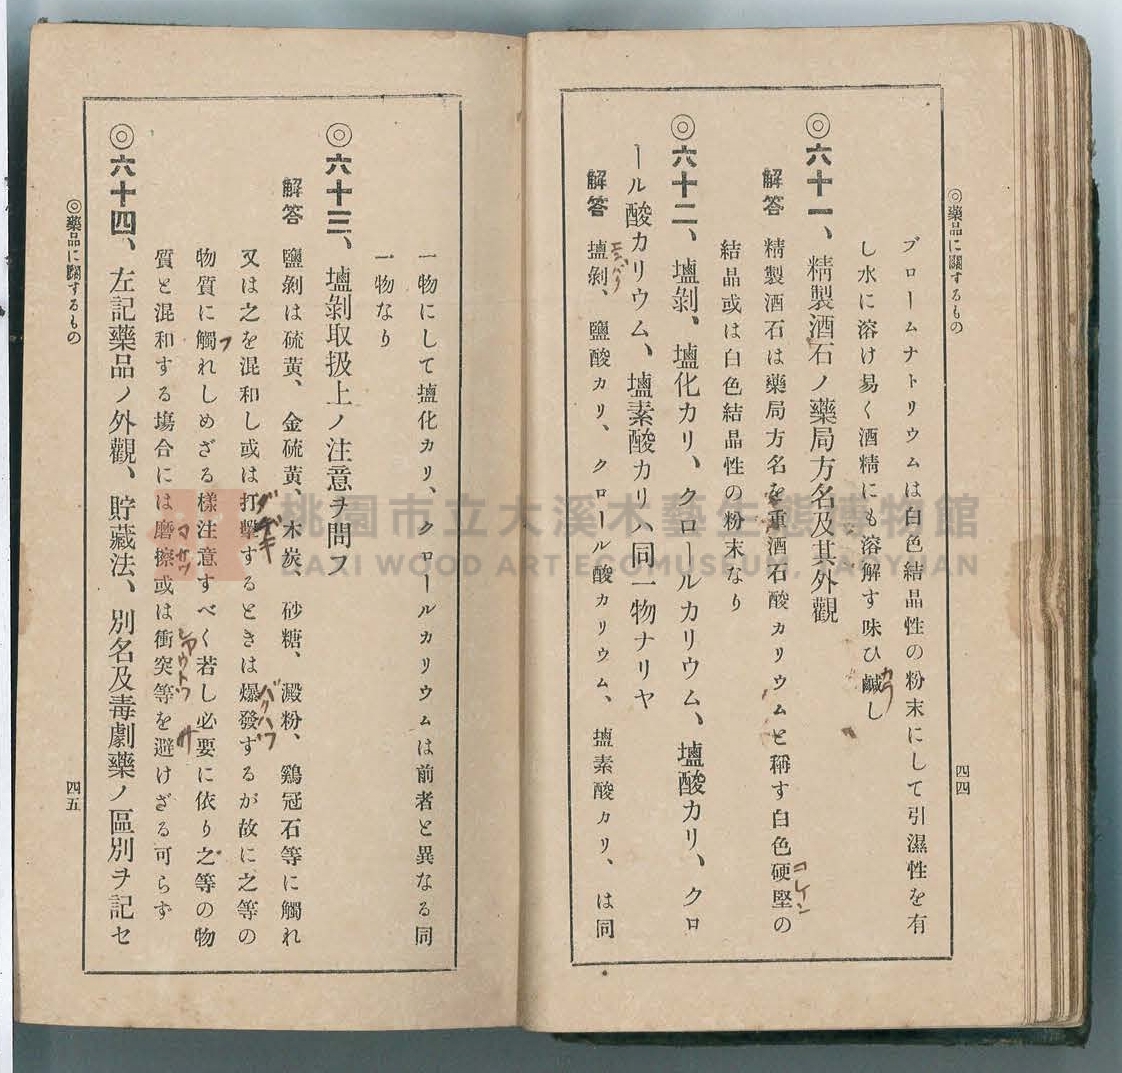 ◎藥品に關するもの
四四
ブロームナトリウムは白色結晶性の粉末にして引濕性を有
し水に溶け易く酒精にも溶解す味ひ鹹し
カラ
◎六十一、精製酒石ノ藥局方名及其外觀
解答 精製酒石は藥局方名を重酒石酸カリウムと稱す白色硬堅の
コレイシ
結晶或は白色結晶性の粉末なり
◎六十二、塩剝、塩化カリ、クロールカリウム、塩酸カリ、クロ
ール酸カリウム、塩素酸カリハ同一物ナリヤ
解答 塩剝、鹽酸カリ、クロール酸カリウム、塩素酸カリ、は同
一物にして塩化カリ、クロールカリウムは前者と異なる同
一物なり
◎六十三、塩剝取扱上ノ注意ヲ問フ
解答 鹽剝は硫黄、金硫黄、木炭、砂糖、澱粉、鷄冠石等に觸れ
又は之を混和し或は打擊するときは爆發するが故に之等の
ダゲキ
バクハツ
物質に觸れしめざる樣注意すべく若し必要に依り之等の物
フ
質と混和する塲合には磨擦或は衝突等を避けざる可らず
マサツ
シヤウトツ
サ
◎六十四、左記藥品ノ外觀、貯藏法、別名及毒劇藥ノ區別ヲ記セ
◎藥品に關するもの
四五
桃園市立大溪木藝生態博物館
DAXI WOOD ART ECOMUSEUM, TAOYUAN